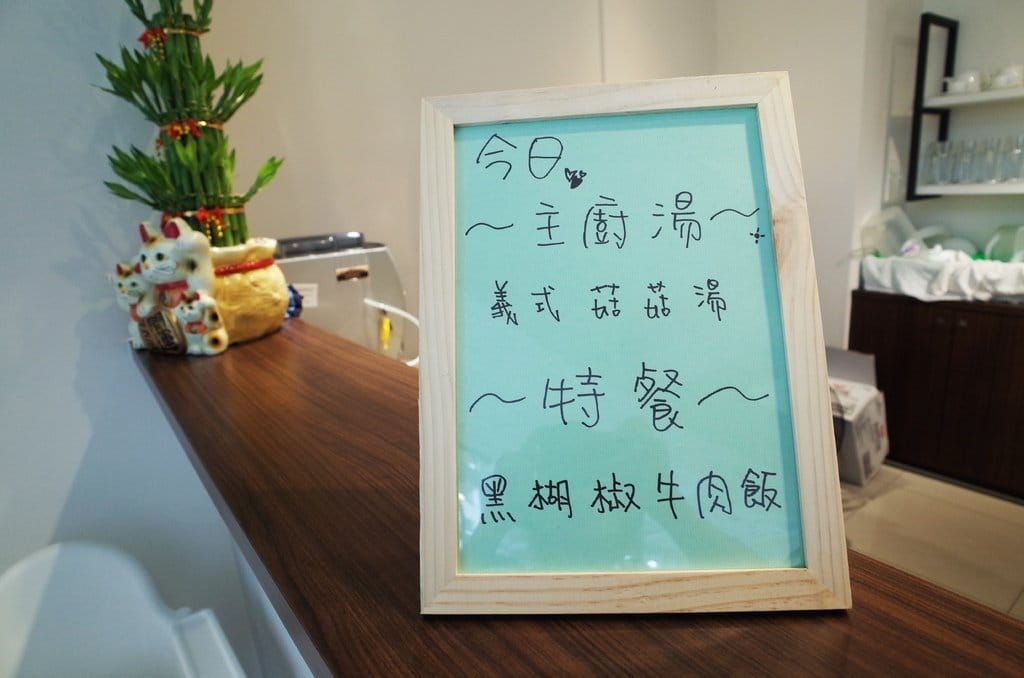 今日
～主廚湯～
義式菇菇湯
～特餐～
黑糊椒牛肉飯